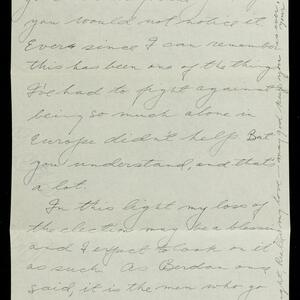 you would not notice it
Ever since I can remember
this has been one of the things
I've had to fight against
being so much alone in
Europe didn't help. But
you understand, and that
a lot.
In this light my loss of
the election may be a blessing
and I expect to look on it
as such. As Berdan once
said, it is the men who go